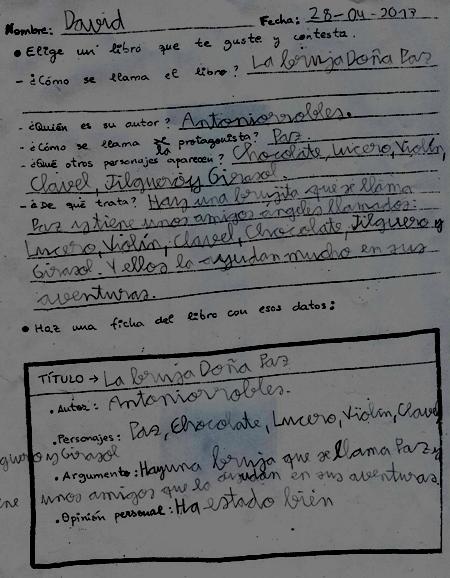 Nombre: David Fecha: 28-04-2017
• Elige un libro que te guste y contesta.
- ¿Cómo se llama el libro? La bruja Doña Paz
- ¿Quién es su autor? Antoniorrobles.
- ¿Cómo se llama la protagonista? Paz.
- ¿Qué otros personajes aparecen? Chocolate, Lucero, Violín,
Clavel, Jilguero y Girasol.
- ¿De qué trata? Hay una brujita que se llama
Paz y tiene unos amigos ángeles llamados:
Lucero, Violín, Clavel, Chocolate, Jilguero y
Girasol. Y ellos la ayudan mucho en sus
aventuras.
• Haz una ficha del libro con esos datos:
TÍTULO → La bruja Doña Paz
• Autor: Antoniorrobles.
• Personajes: Paz, Chocolate, Lucero, Violín, Clavel
guero y Girasol
• Argumento: Hay una bruja que se llama Paz y
ne unos amigos que la ayudan en sus aventuras.
• Opinión personal: Ha estado bién